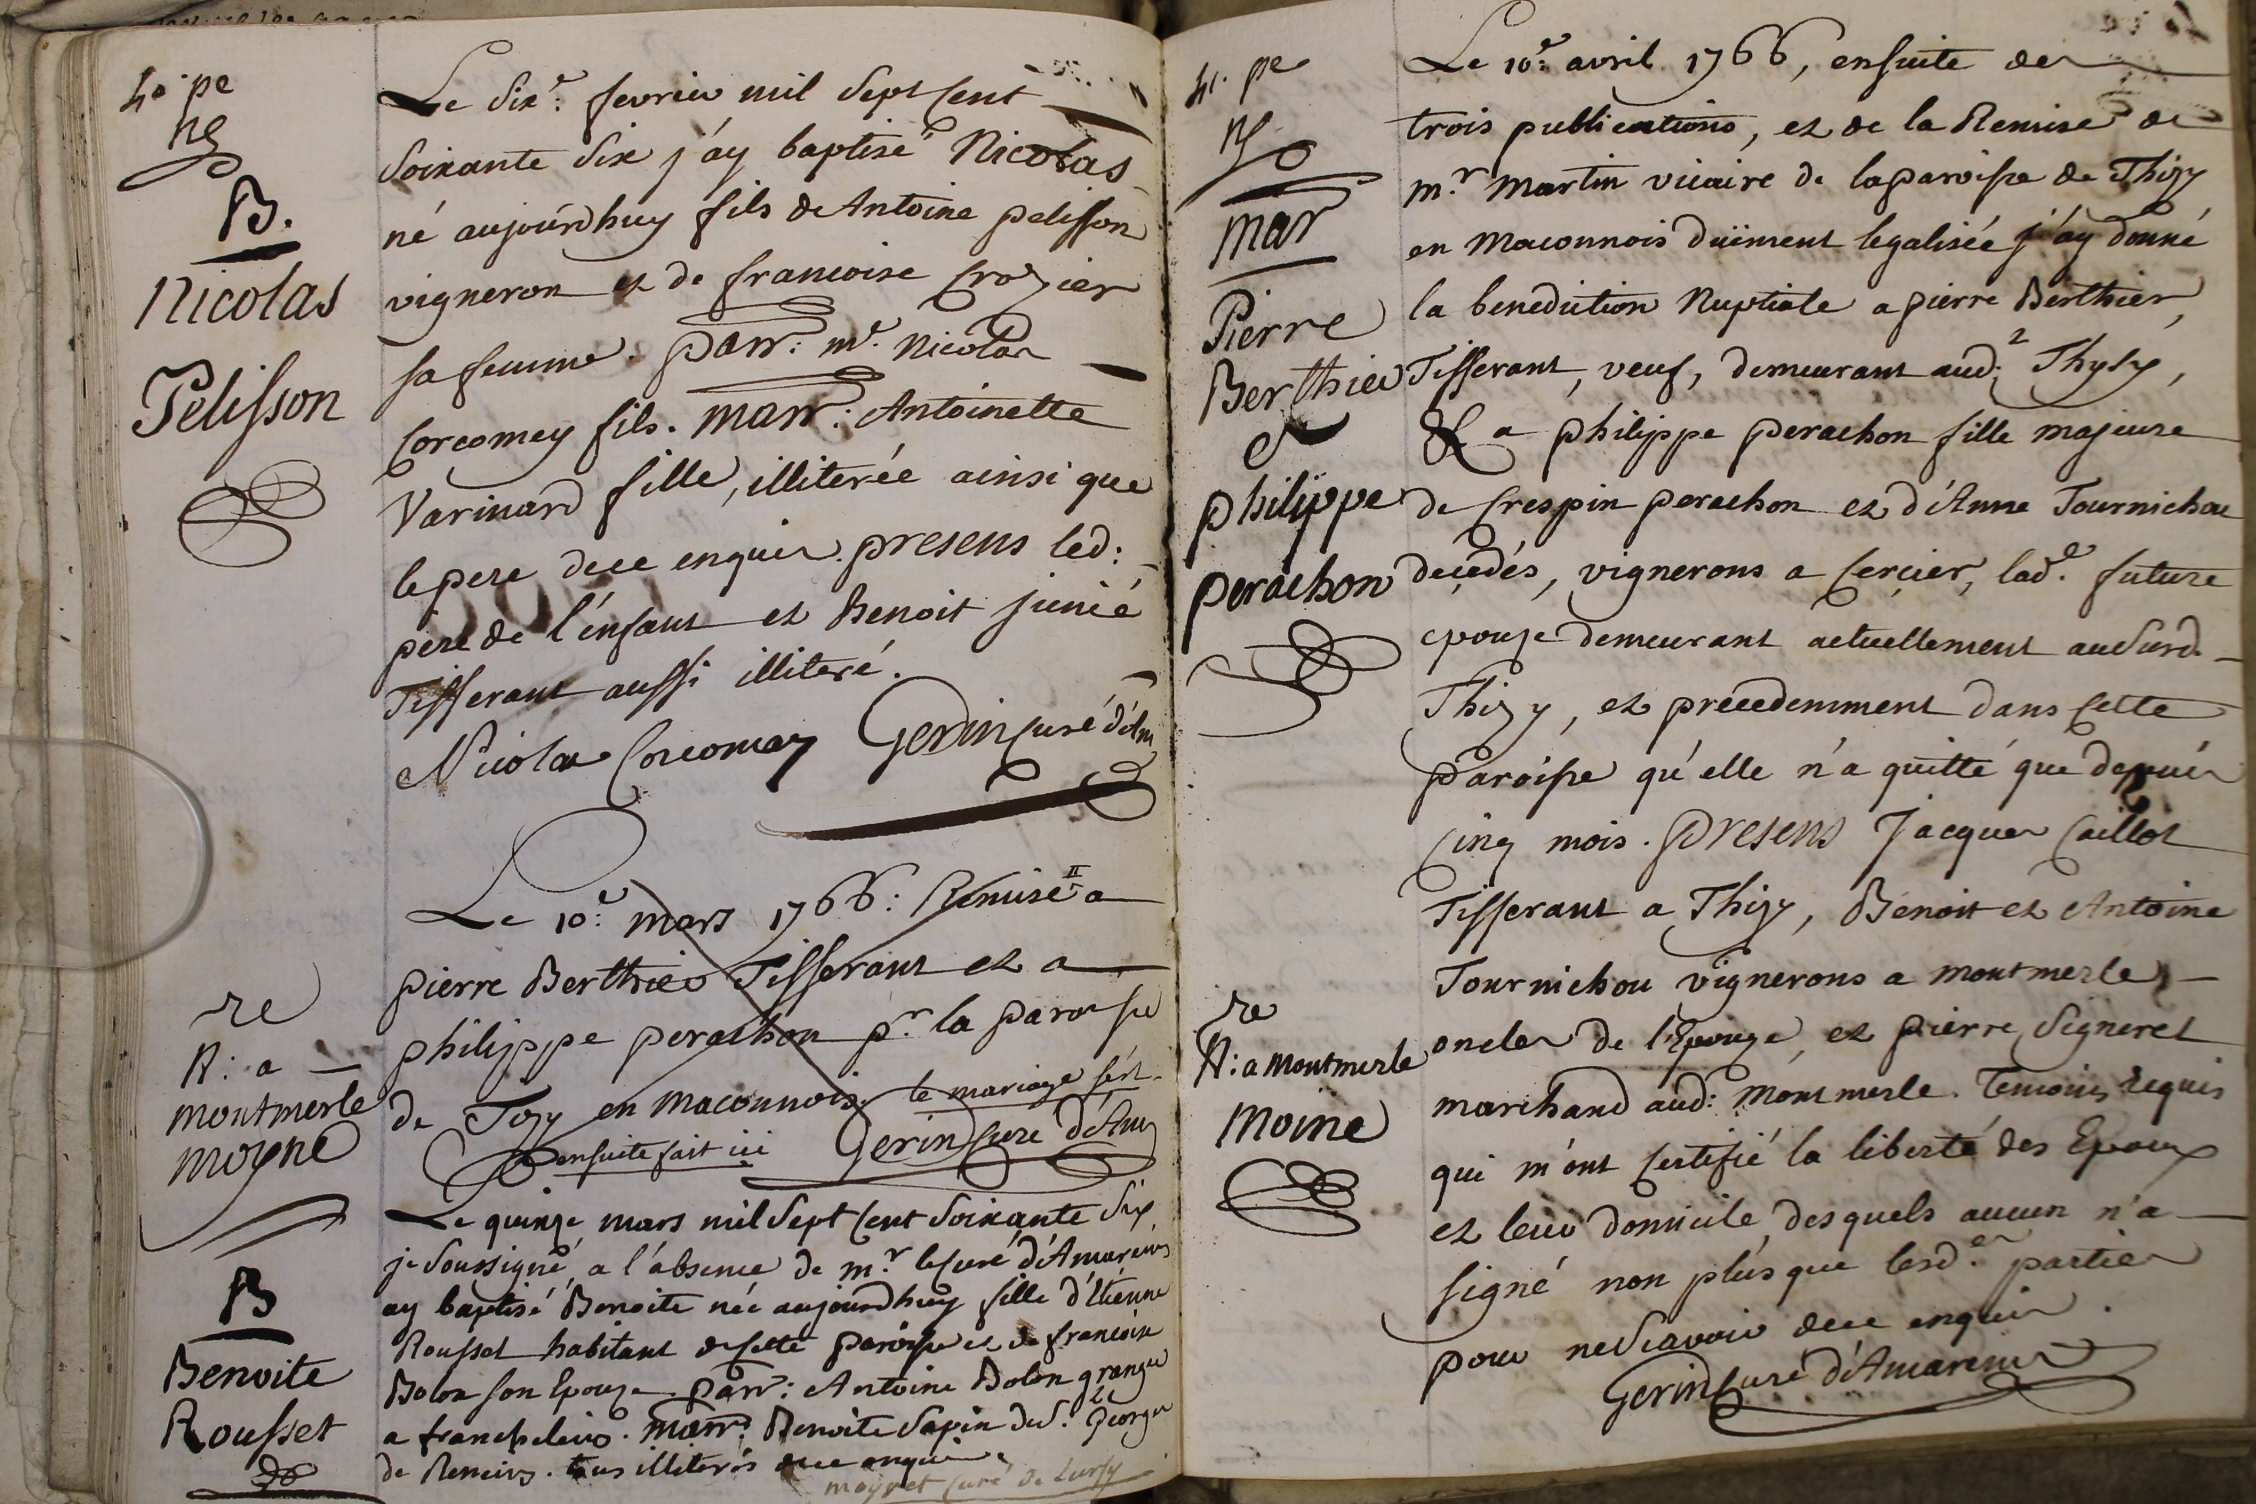 h. pe
B.
Nicolas
Pelisson
Le six.e fevrier mil sept cent
soixante six j'ay baptisé Nicolas
né aujourdhuy fils de Antoine pelisson
vigneron et de francoise Crozier
sa femme. parr: m.e Nicolas
Corcomey fils. marr: Antoinette
Varinard fille, illiterée ainsi que
le pere dece enquis. presens led:
pere de l'enfant et Benoit junié
Tisserant aussi illiteré.
Nicolas Corcomey Gerin Curé d'Am
re
R: a
montmerle
moyne
Le 10.e mars 1766: Remise a
pierre Berthier Tisserant et a
philippe perachon p.r la paroisse
de Tizy en maconnois. le mariage s'est
ensuite fait ici Gerin Curé d'Am
B
Benoite
Rousset
Le quinze mars mil sept cent soixante six
je soussigné a l'absence de m.r le Curé d'Amareins
ay baptisé Benoite née aujourdhuy fille d'Etienne
Rousset habitant de cette paroisse et de francoise
Bolon son Epouze. parr: Antoine Bolon granger
a francheleins. marr: Benoite Sapin de S.t George
de Reneins. tous illiterés dece enquis.
moyret Curé de Lurcy
h. pe
mar
Pierre
Berthier
et
philippe
perachon
Le 10.e avril 1766, ensuite des
trois publications, et de la Remise de
m.r martin vicaire de la paroisse de Thizy
en Maconnois duëment legalisée j'ay donné
la benediction Nuptiale a pierre Berthier,
Tisserant, veuf, demeurant aud.t Thysy,
& a philippe perachon fille majeure
de Crespin perachon et d'Anne Tournichou
decedés, vignerons a Cercier, lad.e future
epouze demeurant actuellement audsusd.
Thizy, et precedemment dans cette
paroisse qu'elle n'a quitté que depuis
cinq mois. presens Jacques Caillot
Tisserant a Thizy, Benoit et Antoine
Tournichou vignerons a montmerle,
oncles de l'Epouze, et pierre Signeret
marchand aud: Montmerle. Temoins requis
qui m'ont certifié la liberté des Epoux
et leur domicile, desquels aucun n'a
signé non plus que lesd.es parties
pour ne scavoir dece enquis.
Gerin Curé d'Amareins
re
R: a Montmerle
Moine